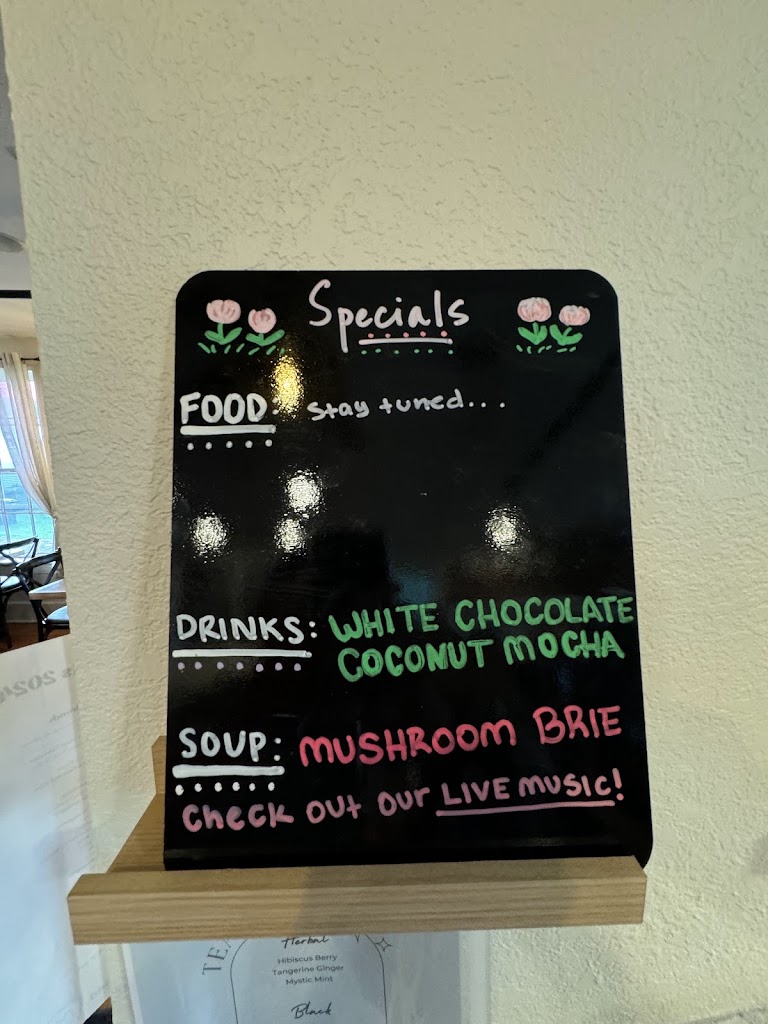 Specials
FOOD: Stay tuned...
DRINKS: WHITE CHOCOLATE
COCONUT MOCHA
SOUP: MUSHROOM BRIE
Check out our LIVE music!
Herbal
Hibiscus Berry
Tangerine Ginger
Mystic Mint
Black